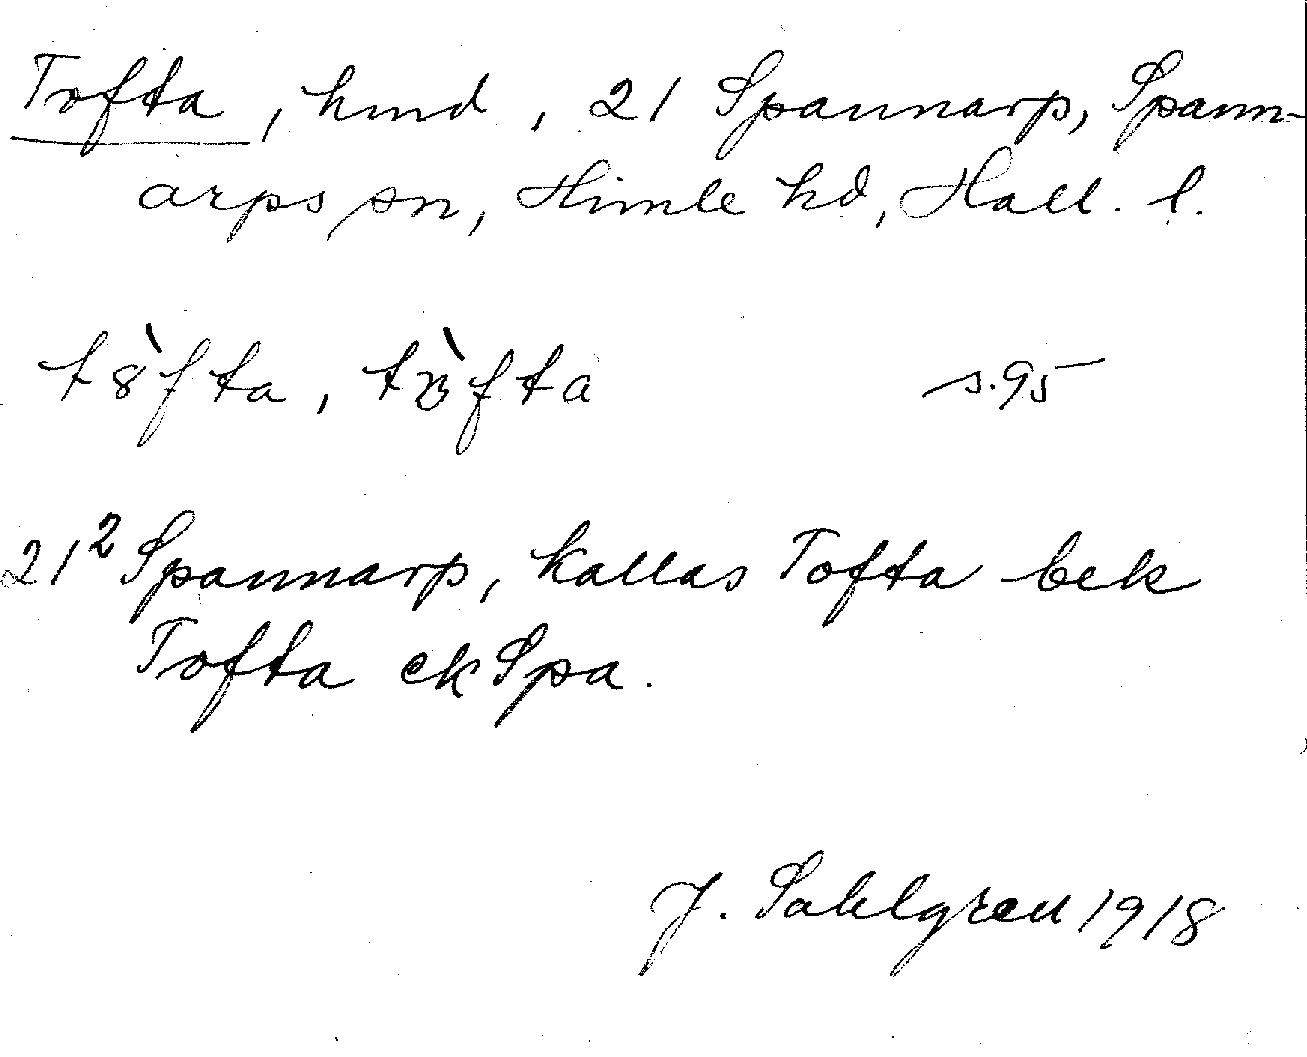 Tofta, hmd, 21 Spannarp, Spann-
arps sn, Himle hd, Hall. l.
s. 95
21² Spannarp, kallas Tofta bek
Tofta ek Spa.
J. Sahlgren 1918